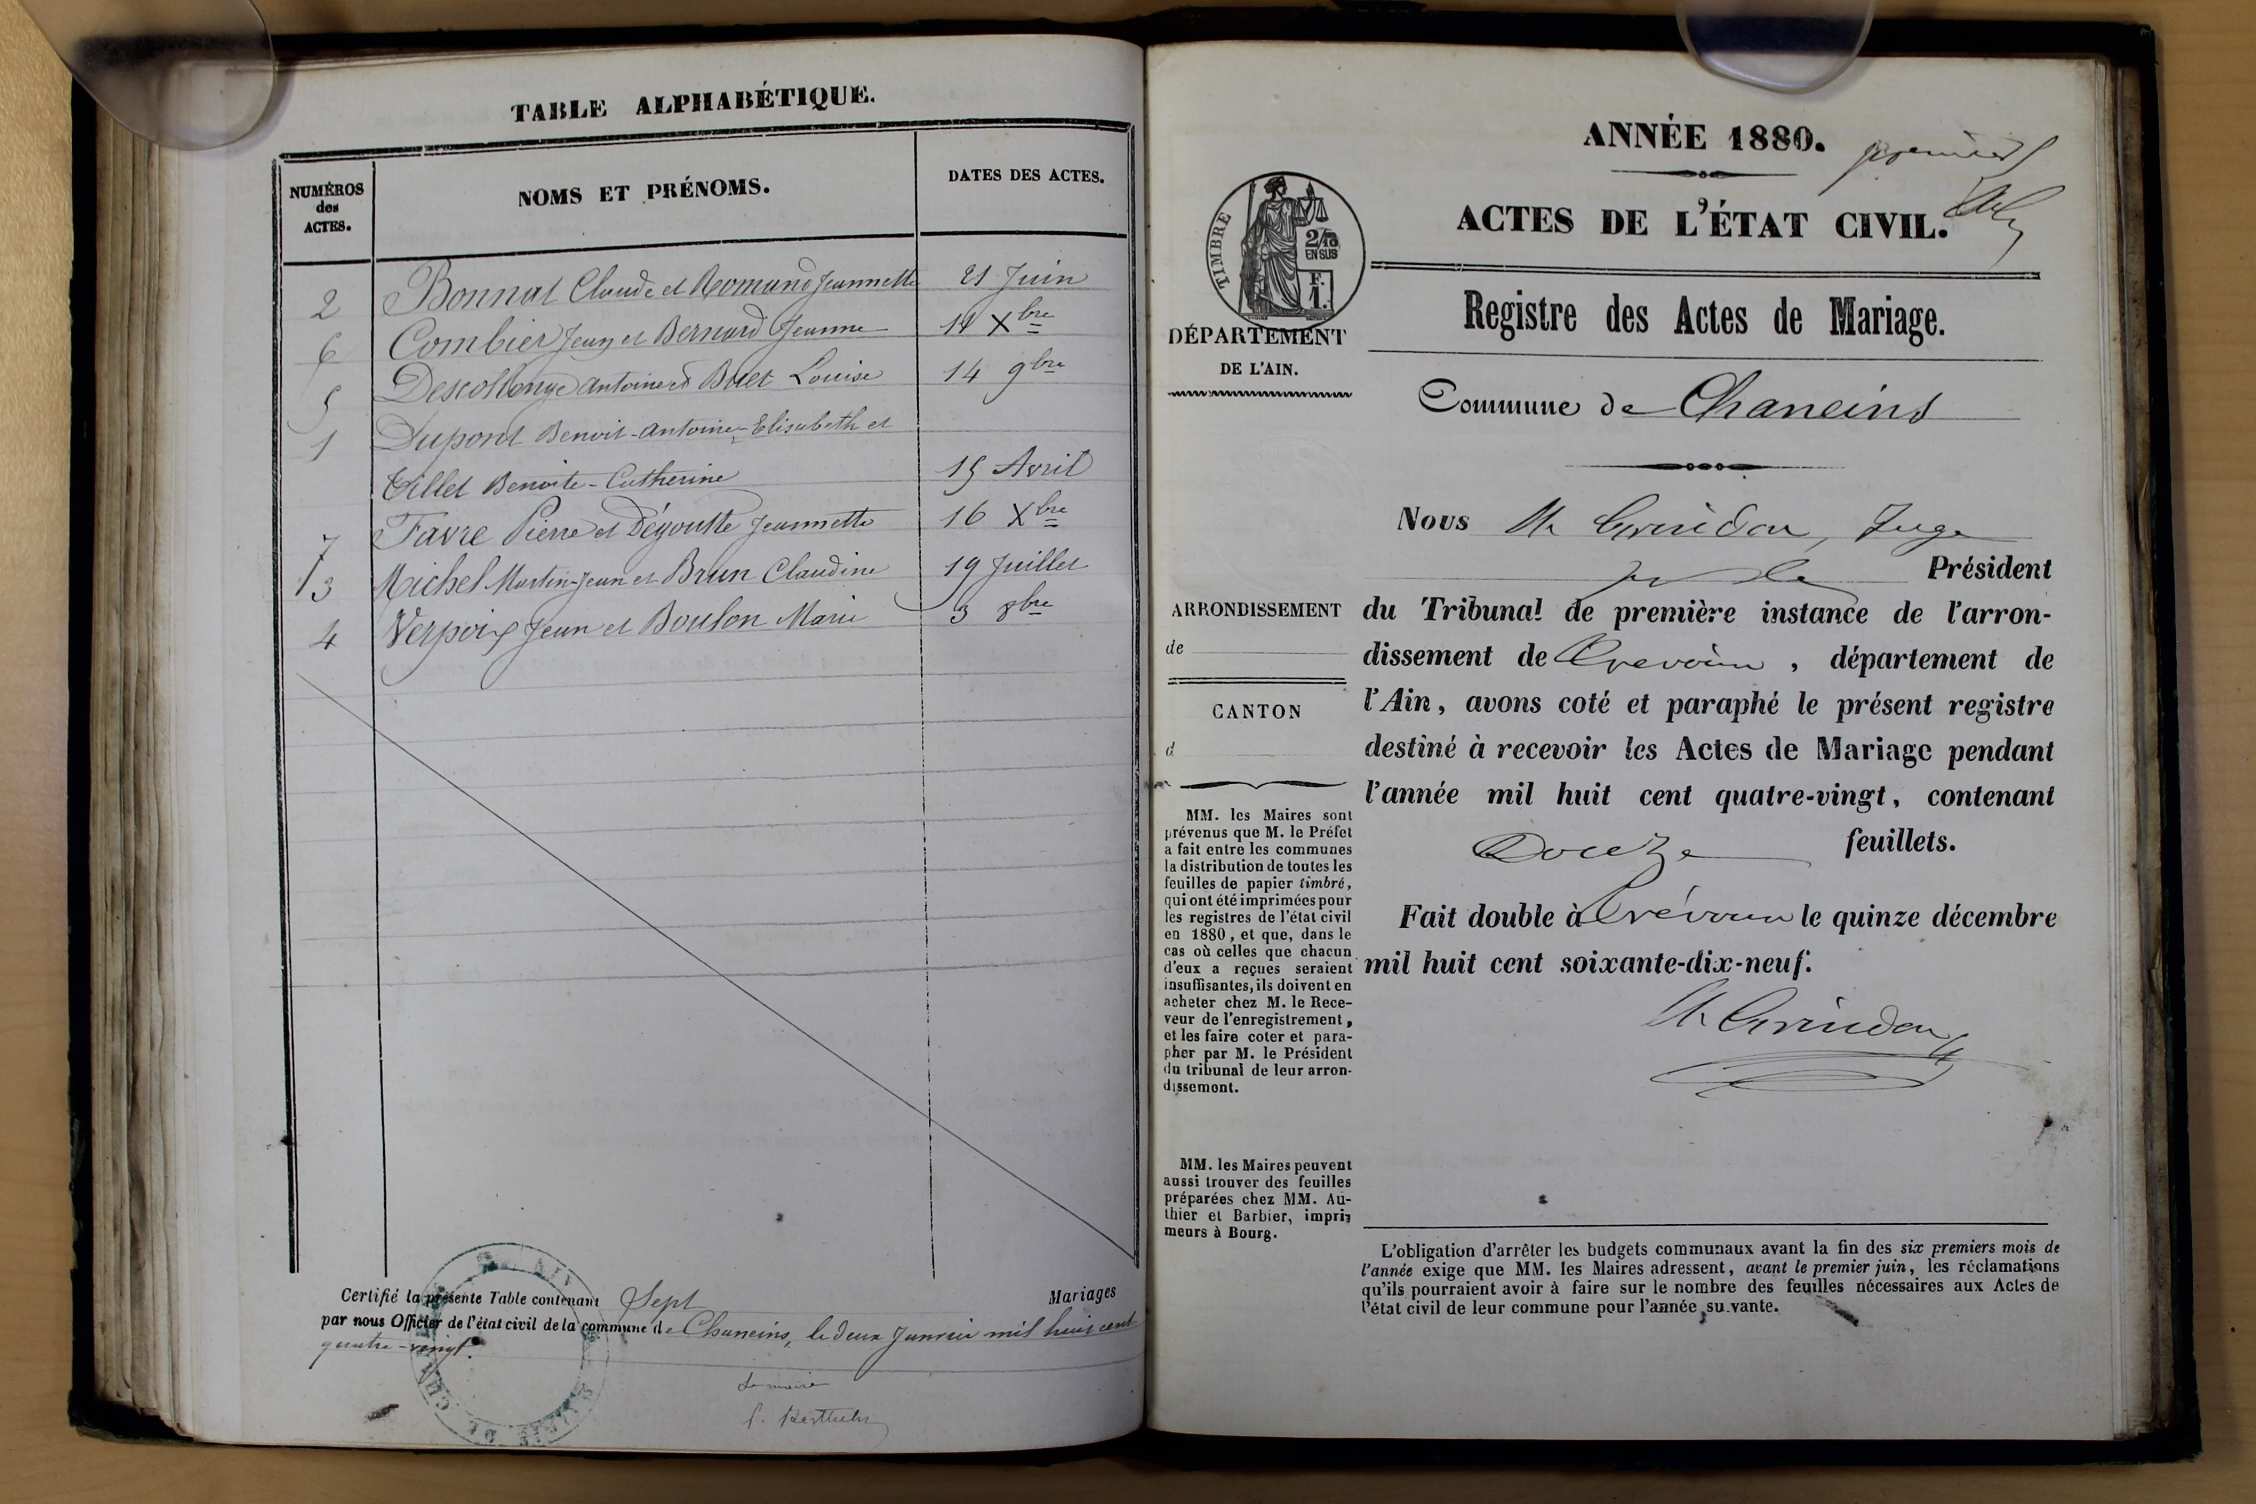 TABLE ALPHABÉTIQUE.
NUMÉROS
des
ACTES.
NOMS ET PRÉNOMS.
DATES DES ACTES.
2 Bonnat Claude et Romand Jeannette 21 Juin
6 Combier Jean et Bernard Jeanne 11 Xbre
5 Descollonge Antoine et Buet Louise 14 9bre
1 Dupont Benoit-Antoine-Elisabeth et
Tillet Benoite-Catherine 15 Avril
7 Favre Pierre et Dégoutte Jeannette 16 Xbre
3 Michel Martin-Jean et Brun Claudine 19 Juillet
4 Verpoix Jean et Boulon Marie 3 8bre
Certifié la présente Table contenant Sept Mariages
par nous Officier de l'état civil de la commune de Chaneins, le deux Janvier mil huit cent
quatre-vingt.
Le maire
ANNÉE 1880.
premier
ACTES DE L'ÉTAT CIVIL.
TIMBRE
2/10
EN SUS
F.
1.
DÉPARTEMENT
DE L'AIN.
Registre des Actes de Mariage.
Commune de Chaneins
Nous M Grindon, Juge
Président
du Tribunal de première instance de l'arron-
dissement de Trévoux, département de
l'Ain, avons coté et paraphé le présent registre
destiné à recevoir les Actes de Mariage pendant
l'année mil huit cent quatre-vingt, contenant
Douze feuillets.
Fait double à Trévoux le quinze décembre
mil huit cent soixante-dix-neuf.
M Grindon
ARRONDISSEMENT
de
CANTON
d
MM. les Maires sont
prévenus que M. le Préfet
a fait entre les communes
la distribution de toutes les
feuilles de papier timbré,
qui ont été imprimées pour
les registres de l'état civil
en 1880, et que, dans le
cas où celles que chacun
d'eux a reçues seraient
insuffisantes, ils doivent en
acheter chez M. le Rece-
veur de l'enregistrement,
et les faire coter et para-
pher par M. le Président
du tribunal de leur arron-
dissement.
MM. les Maires peuvent
aussi trouver des feuilles
préparées chez MM. Au-
thier et Barbier, impri-
meurs à Bourg.
L'obligation d'arrêter les budgets communaux avant la fin des six premiers mois de
l'année exige que MM. les Maires adressent, avant le premier juin, les réclamations
qu'ils pourraient avoir à faire sur le nombre des feuilles nécessaires aux Actes de
l'état civil de leur commune pour l'année suivante.